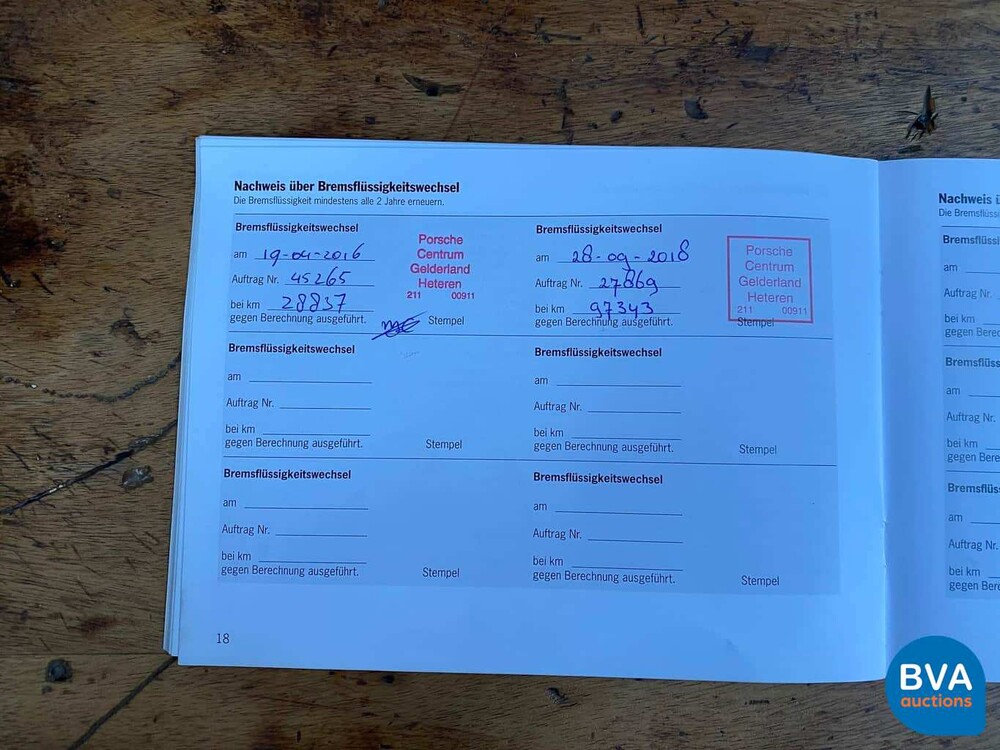 Nachweis über Bremsflüssigkeitswechsel
Die Bremsflüssigkeit mindestens alle 2 Jahre erneuern.
Bremsflüssigkeitswechsel
am 19-04-2016
Auftrag Nr. 45265
bei km 28837
gegen Berechnung ausgeführt.
Stempel
Porsche
Centrum
Gelderland
Heteren
211 00911
Bremsflüssigkeitswechsel
am 28-09-2018
Auftrag Nr. 27869
bei km 97343
gegen Berechnung ausgeführt.
Stempel
Porsche
Centrum
Gelderland
Heteren
211 00911
Bremsflüssigkeitswechsel
am
Auftrag Nr.
bei km
gegen Berechnung ausgeführt.
Stempel
Bremsflüssigkeitswechsel
am
Auftrag Nr.
bei km
gegen Berechnung ausgeführt.
Stempel
Bremsflüssigkeitswechsel
am
Auftrag Nr.
bei km
gegen Berechnung ausgeführt.
Stempel
Bremsflüssigkeitswechsel
am
Auftrag Nr.
bei km
gegen Berechnung ausgeführt.
Stempel
18
Nachweis
Die Bremsflüss
Bremsflüssi
am
Auftrag Nr.
bei km
gegen Berec
Bremsflüss
am
Auftrag Nr.
bei km
gegen Bere
Bremsflüs
am
Auftrag Nr.
bei km
gegen Bere
BVA
auctions